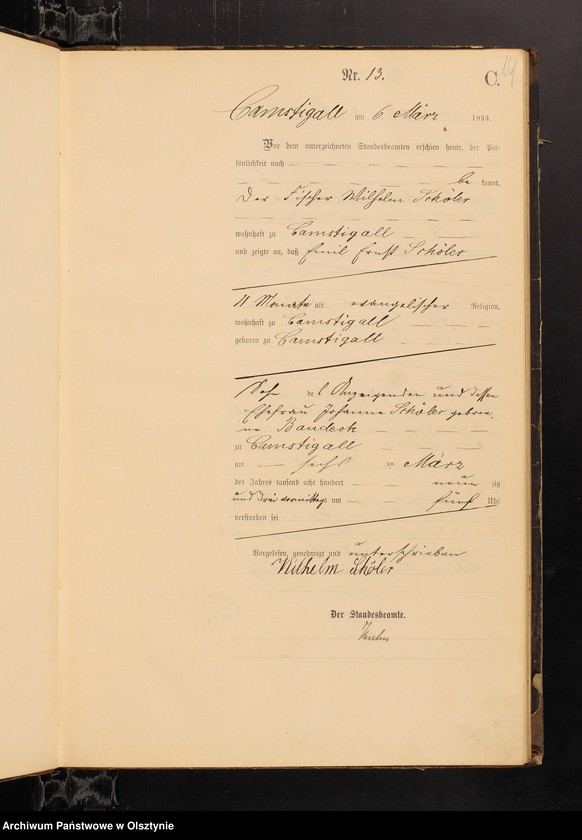 Nr. 13.
C.
14
Camstigall am 6. März 1893.
Vor dem unterzeichneten Standesbeamten erschien heute, der Per-
sönlichkeit nach
be kannt,
der Fischer Wilhelm Schöler
wohnhaft zu Camstigall
und zeigte an, daß Emil Ernst Schöler
11 Monate alt evangelischer Religion,
wohnhaft zu Camstigall
geboren zu Camstigall
Sohn des Anzeigenden und dessen
Ehefrau Johanne Schöler gebore-
ne
zu Camstigall
am sechs ten März
des Jahres tausend acht hundert neun zig
und drei vormittags um fünf Uhr
verstorben sei
Vorgelesen, genehmigt und unterschrieben
Wilhelm Schöler
Der Standesbeamte.
Archiwum Państwowe w Olsztynie